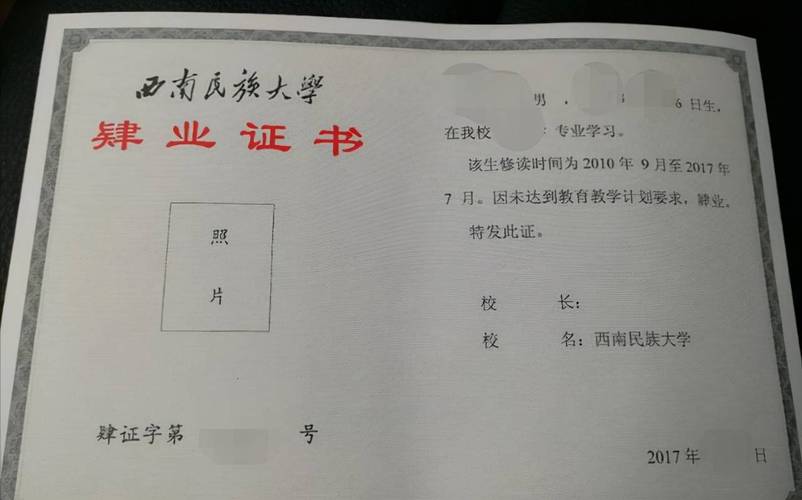 西南民族大学
肄业证书
照
片
肄证字第 号
男, 6日生,
在我校 专业学习。
该生修读时间为2010年9月至2017年
7月。因未达到教育教学计划要求,肄业。
特发此证。
校 长:
校 名:西南民族大学
2017年 日